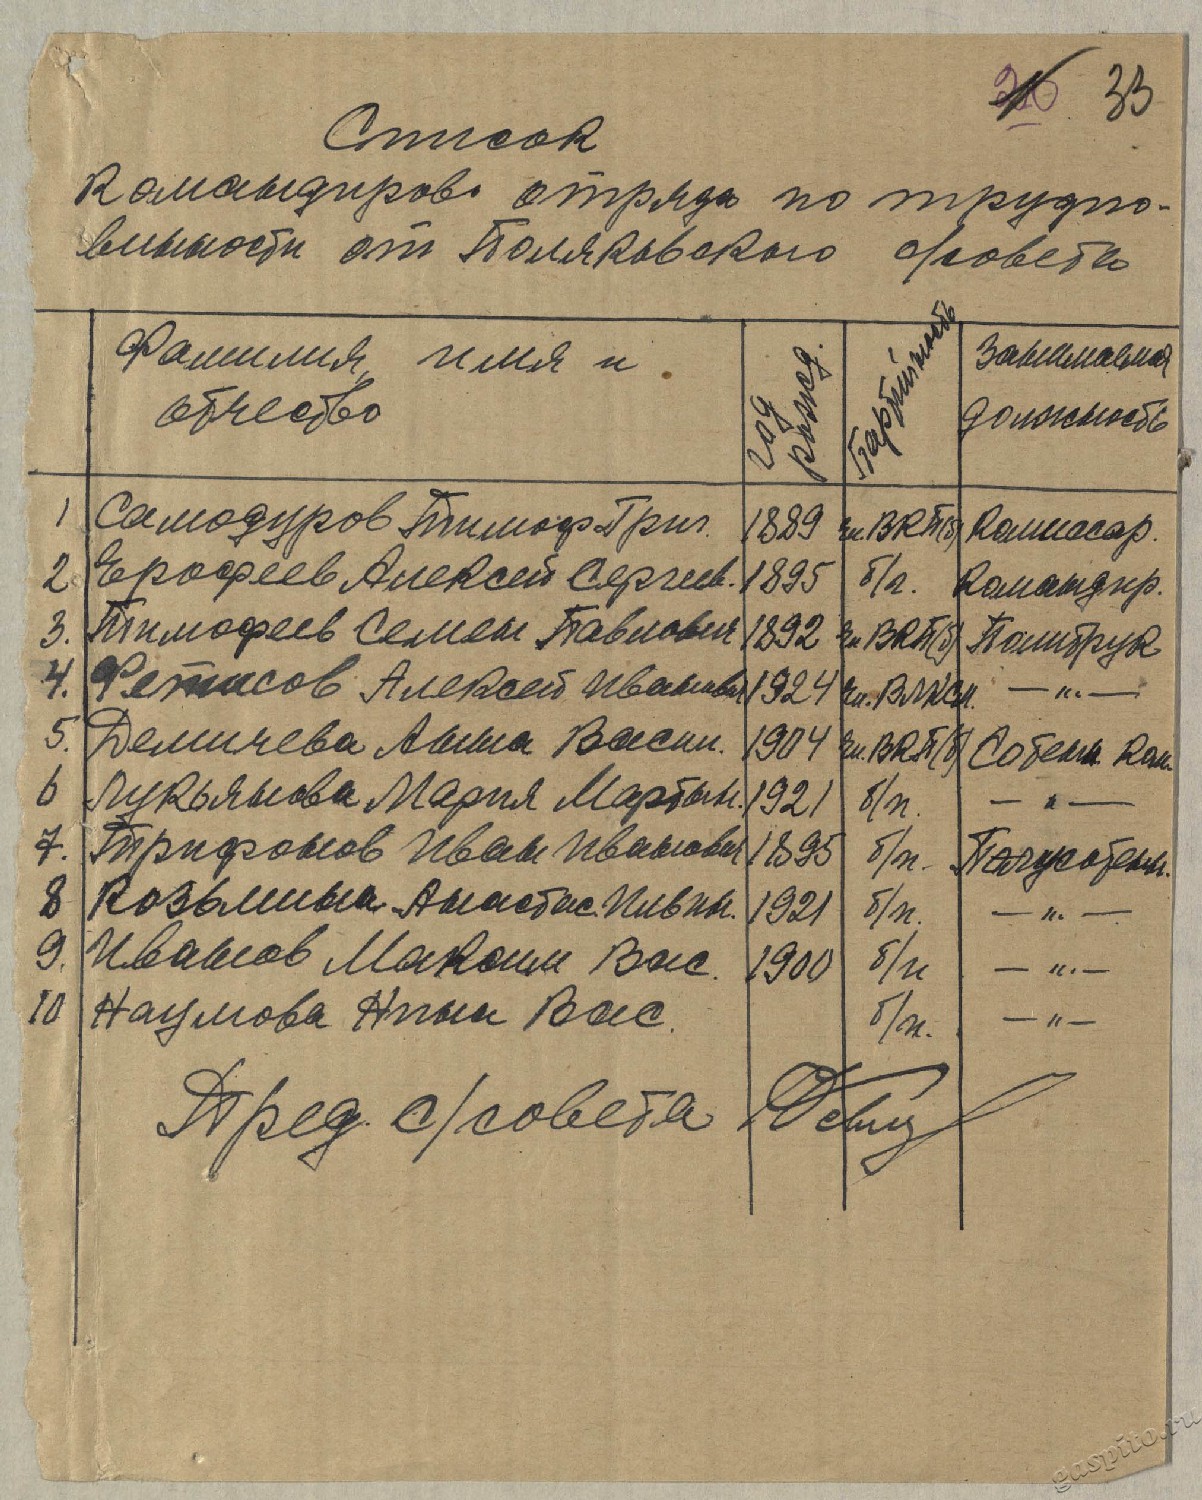 33
Список
командиров отряда по трудпо-
винности от Поляковского с/совета
Фамилия, имя и отчество | год рожд. | Партийность | Занимаемая должность
1 Самодуров Тимоф. Григ. 1889 чл. ВКП(б) Комиссар.
2 Ерофеев Алексей Сергеев. 1895 б/п. Командир.
3. Тимофеев Семен Павлович 1892 чл. ВКП(б) Политрук
4. Фетисов Алексей Иванович 1924 чл. ВЛКСМ. — „ —
5. Демичева Анна Васил. 1904 чл. ВКП(б) Сотенн. Ком.
6 Лукьянова Мария Мартын. 1921 б/п. — „ —
7. Трифонов Иван Иванович 1895 б/п. Полусотенн.
8 Козьмина Анастас. 1921 б/п. — „ —
9. Иванов Максим Вас. 1900 б/п — „ —
10 Наумова Нина Вас. б/п. — „ —
Пред. с/совета
gaspito.ru